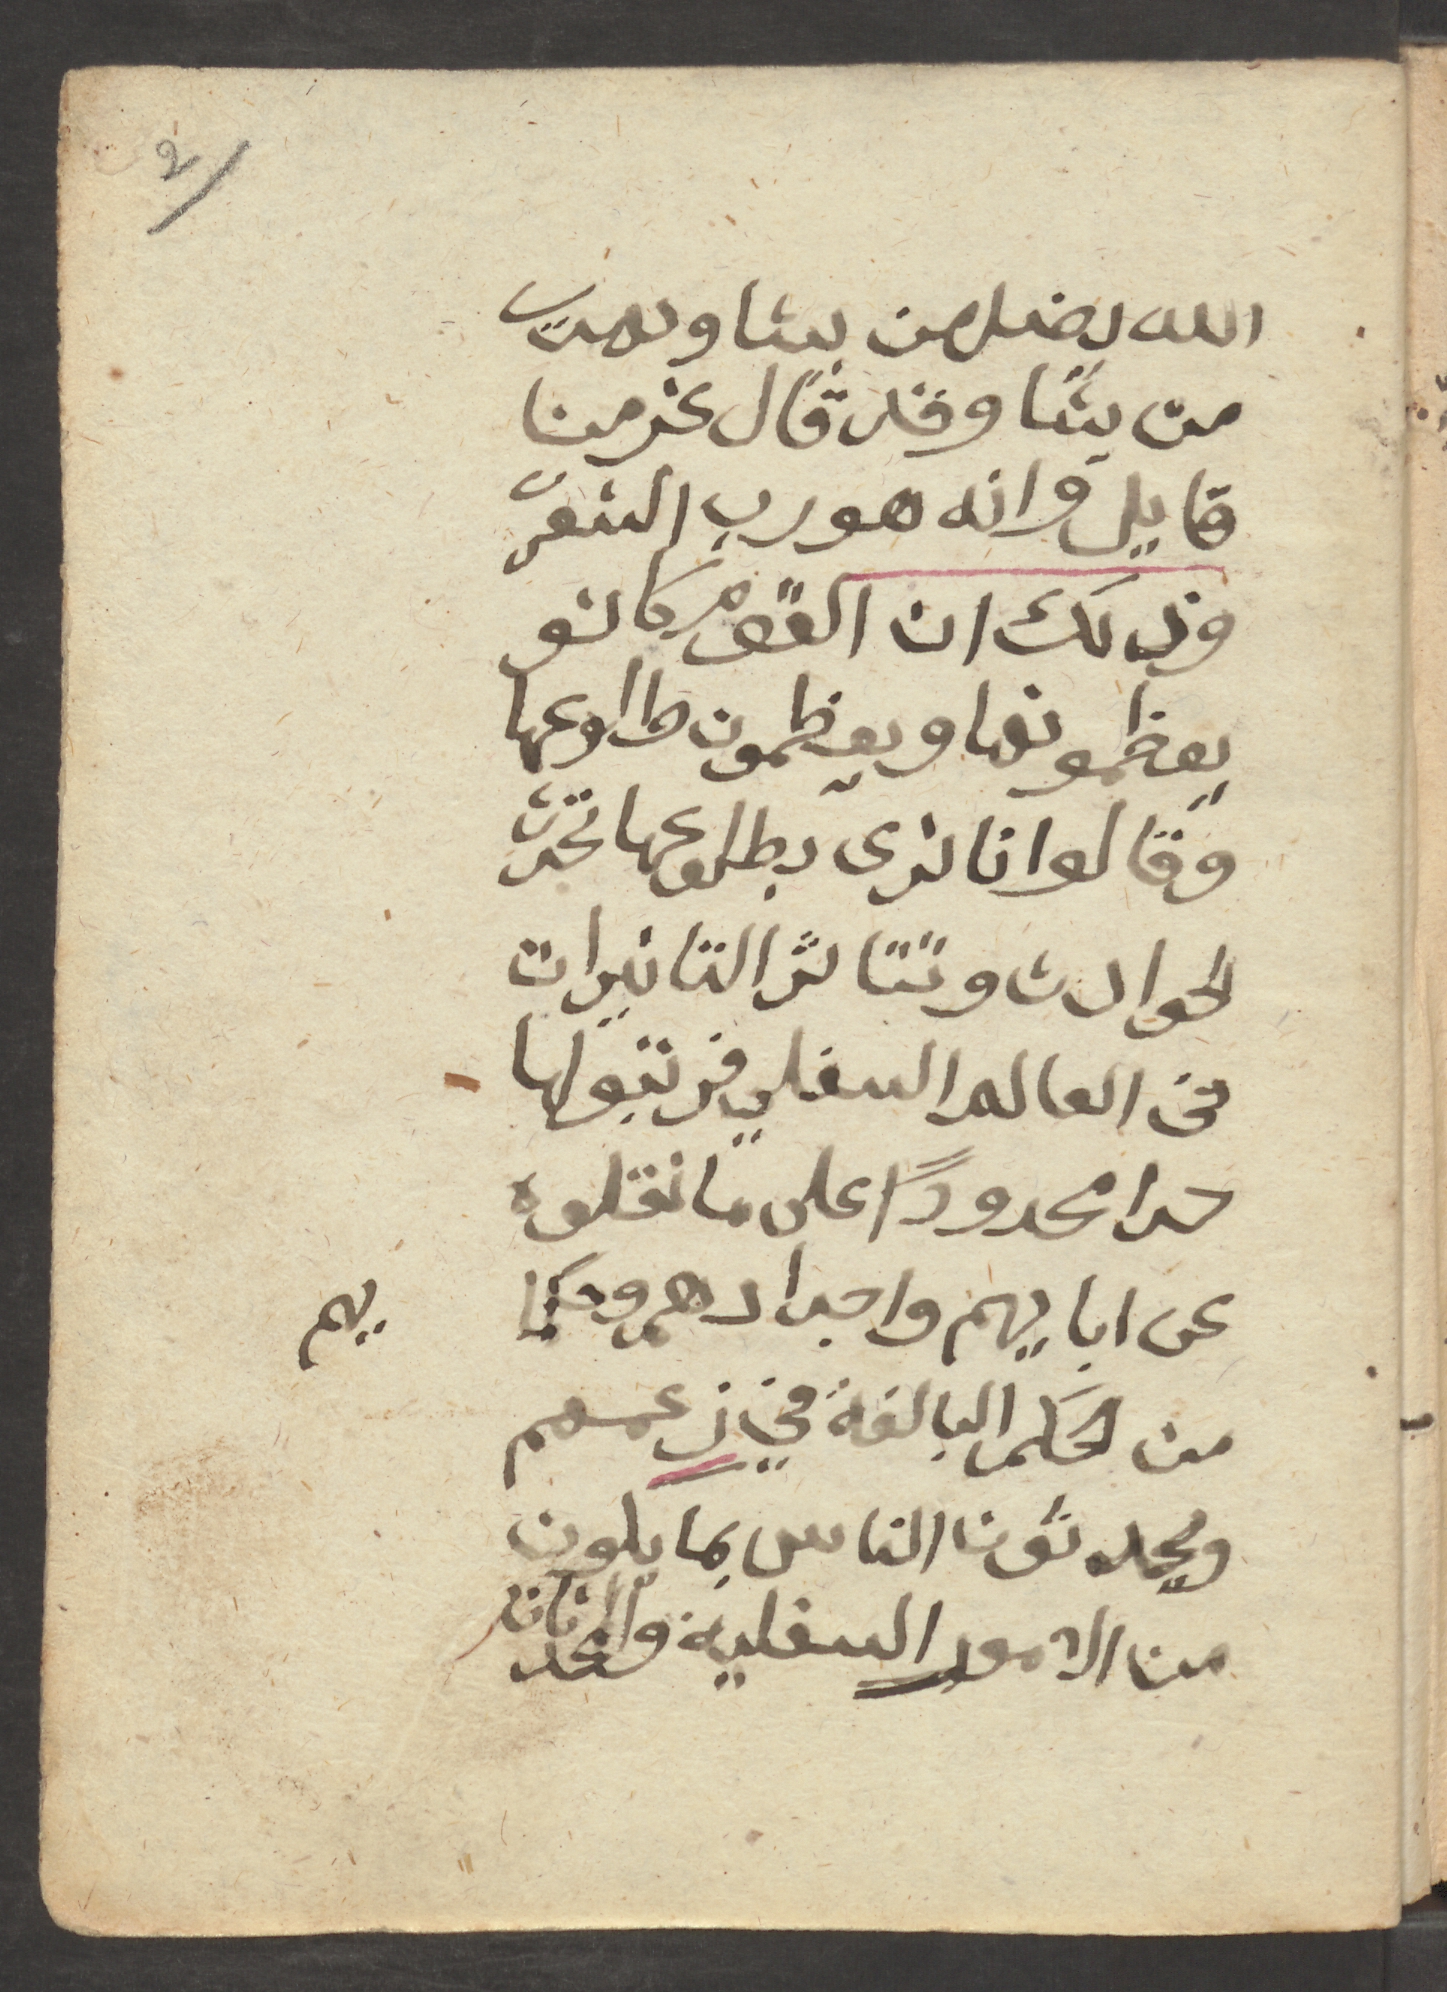 ٢
الله يضل من يشا ويهدي
من يشا وقد قال عز من
قايل وانه هو رب الشعرى
وذلك ان القوم كانو
يعظمونها ويعظمون طلوعها
وقالوا نا نرى بطلوعها تحدث
الحوادث وتتاثر التاثيرات
في العالم السفلي فرتبو لها
حدا محدوداً على ما نقلوه
عن ابايهم واجدادهم وحكما
يهم
من الحكم البالغة في زعمهم
ويحدثون الناس بما يكون
من الامور السفلية